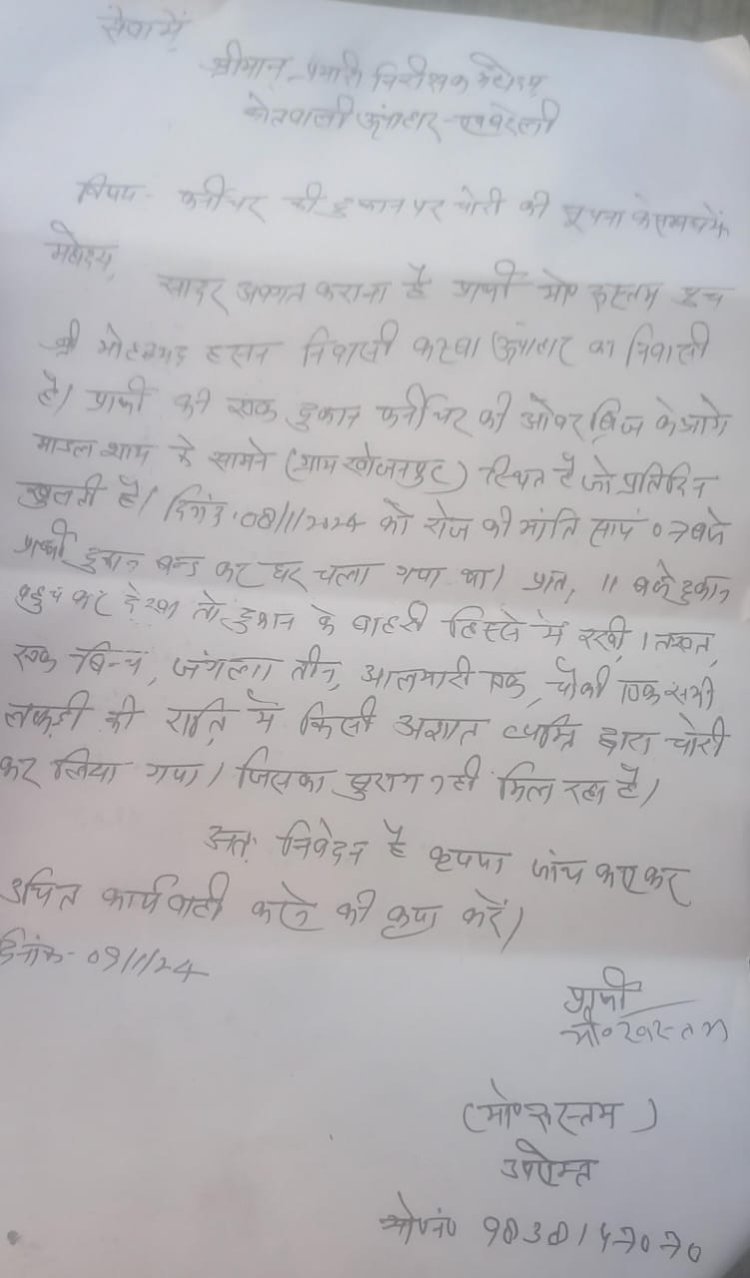 सेवा में
श्रीमान प्रभारी निरीक्षक महोदय
कोतवाली ऊंचाहार - रायबरेली
विषय - फर्नीचर की दुकान पर चोरी की सूचना के सम्बन्ध में
महोदय,
सादर अवगत कराना है प्रार्थी मो० रूस्तम
श्री मोहम्मद हसन निवासी कस्बा ऊंचाहार का निवासी
है। प्रार्थी की एक दुकान फर्नीचर की ओवर ब्रिज के आगे
माडल शाप के सामने (ग्राम खोजनपुर) स्थित है जो प्रतिदिन
खुलती है। दिनांक 08/1/2024 को रोज की भांति सायं 07 बजे
प्रार्थी दुकान बन्द कर घर चला गया था। प्रात, 11 बजे दुकान
पहुंच कर देखा तो दुकान के बाहरी हिस्से में रखी, तख्त,
एक बिन्च, जंगला तीन, आलमारी एक, चौकी एक सभी
लकड़ी की रात्रि में किसी अज्ञात व्यक्ति द्वारा चोरी
कर लिया गया। जिसका सुराग नही मिल रहा है।
अतः निवेदन है कृपया जांच कराकर
उचित कार्यवाही करने की कृपा करें।
दिनांक - 09/1/24
प्रार्थी
मो० रूस्तम
(मो० रूस्तम)
उपरोक्त
मो०नं० 9838147070